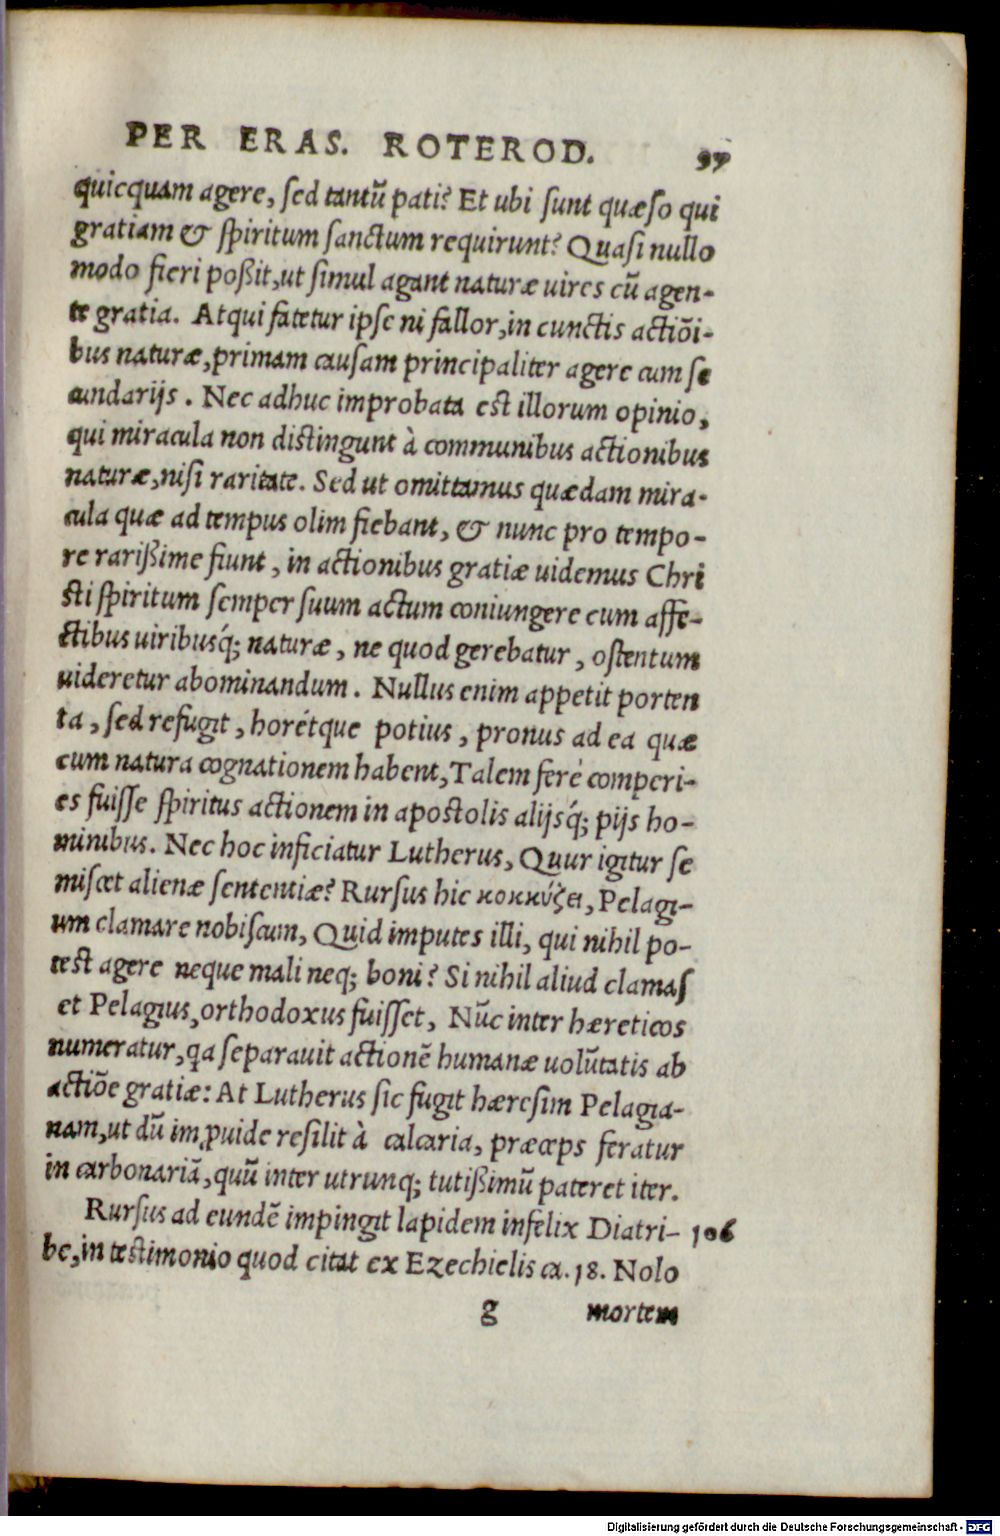 PER ERAS. ROTEROD. 97
quicquam agere, sed tantũ pati? Et ubi sunt quæso qui
gratiam & spiritum sanctum requirunt? Quasi nullo
modo fieri poßit, ut simul agant naturæ uires cũ agen-
te gratia. Atqui fatetur ipse ni fallor, in cunctis actiõi-
bus naturæ, primam causam principaliter agere cum se
cundarijs. Nec adhuc improbata est illorum opinio,
qui miracula non distingunt à communibus actionibus
naturæ, nisi raritate. Sed ut omittamus quædam mira-
cula quæ ad tempus olim fiebant, & nunc pro tempo-
re rarißime fiunt, in actionibus gratiæ uidemus Chri
sti spiritum semper suum actum coniungere cum affe-
ctibus uiribusq́; naturæ, ne quod gerebatur, ostentum
uideretur abominandum. Nullus enim appetit porten
ta, sed refugit, horétque potius, pronus ad ea quæ
cum natura cognationem habent, Talem feré comperi-
es fuisse spiritus actionem in apostolis alijsq́; pijs ho-
minibus. Nec hoc inficiatur Lutherus, Quur igitur se
miscet alienæ sententiæ? Rursus hic κοκκύζει, Pelagi-
um clamare nobiscum, Quid imputes illi, qui nihil po-
test agere neque mali neq; boni? Si nihil aliud clamas
et Pelagius, orthodoxus fuisset, Nũc inter hæreticos
numeratur, qa separauit actionẽ humanæ uolũtatis ab
actiõe gratiæ: At Lutherus sic fugit hæresim Pelagia-
nam, ut dũ im puide resilit à calcaria, præceps feratur
in carbonariã, quũ inter utrunq; tutißimũ pateret iter.
Rursus ad eundẽ impingit lapidem infelix Diatri- 106
be, in testimonio quod citat ex Ezechielis ca. 18. Nolo
g mortem
Digitalisierung gefördert durch die Deutsche Forschungsgemeinschaft - DFG